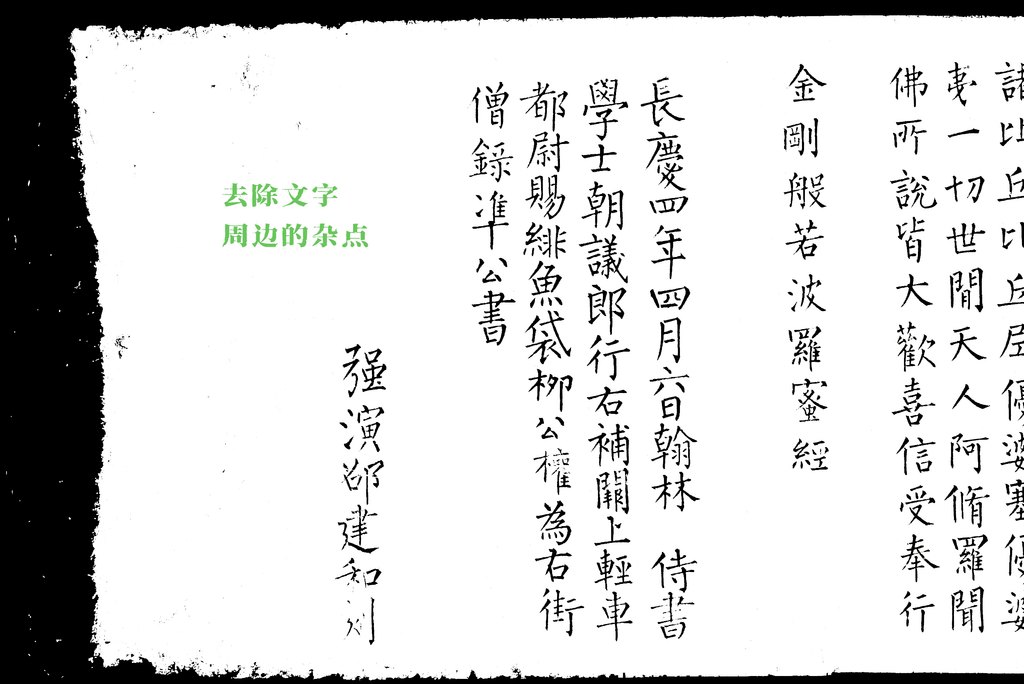 諸比丘比丘尼優婆塞優婆
夷一切世間天人阿脩羅聞
佛所說皆大歡喜信受奉行
金剛般若波羅蜜經
長慶四年四月六日翰林 侍書
學士朝議郎行右補闕上輕車
都尉賜緋魚袋柳公權為右街
僧錄准公書
强演邵建和刻
去除文字
周边的杂点